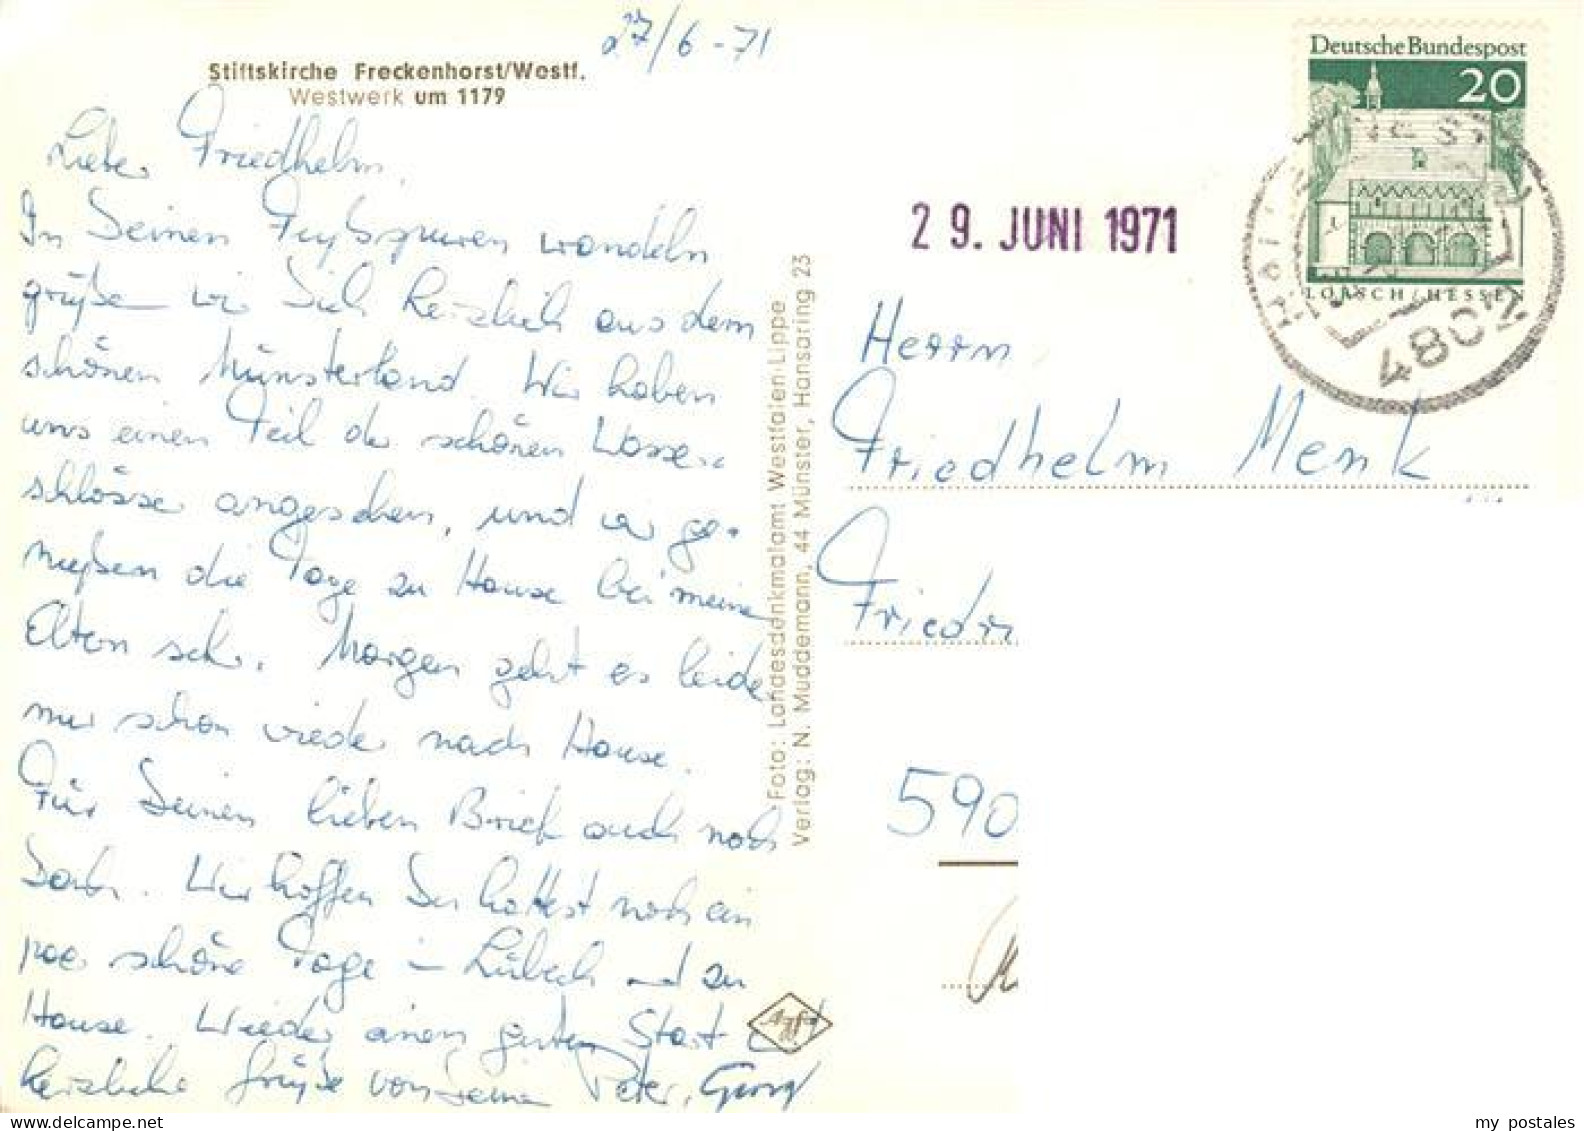 27/6-71
Stiftskirche Freckenhorst/Westf.
Westwerk um 1179
Lieber Friedhelm,
In Deinen Fußspuren wandeln
grüße wir Dich herzlich aus dem
schönen Münsterland. Wir haben
uns einen Teil der schönen Wasser-
schlösser angesehen, und wir ge-
nießen die Tage zu Hause bei meinen
Eltern sehr. Morgen geht es leider
nur schon wieder nach Hause.
Für Deinen lieben Brief auch noch
Dank. Wir hoffen Du hattest noch ein
paar schöne Tage in Lübeck und zu
Hause. Wieder einen guten Start und
herzliche Grüße von Deinen Peter, Georg
Foto: Landesdenkmalamt Westfalen-Lippe
Verlag: N. Muddemann, 44 Münster, Hansaring 23
Agfa
Deutsche Bundespost
20
LORSCH / HESSEN
4802
29. JUNI 1971
Herrn
Friedhelm Menk
Friedr
590
my postales